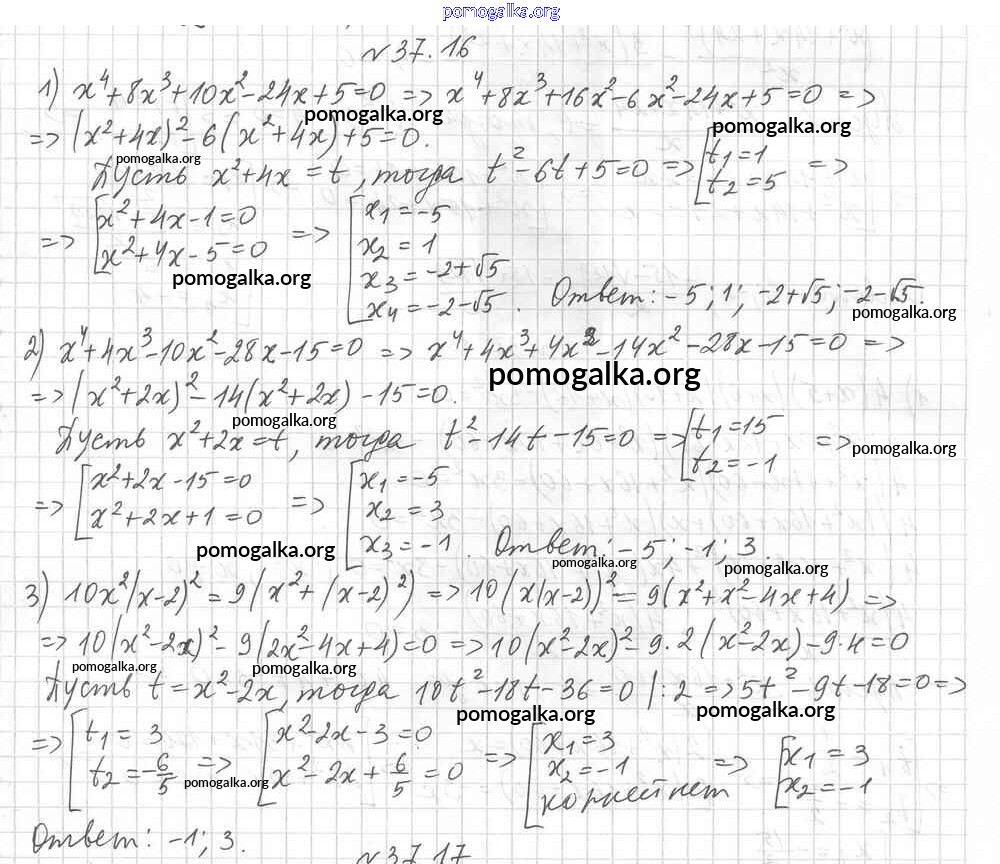 pomogalka.org
№37.16
1) x⁴+8x³+10x²-24x+5=0 => x⁴+8x³+16x²-6x²-24x+5=0 =>
pomogalka.org
pomogalka.org
=> (x²+4x)²-6(x²+4x)+5=0.
pomogalka.org
Пусть x²+4x=t, тогда t²-6t+5=0 => [t₁=1 =>
t₂=5
=> [x²+4x-1=0 => [x₁=-5
x²+4x-5=0 x₂=1
pomogalka.org
x₃=-2+√5
x₄=-2-√5. Ответ: -5; 1; -2+√5; -2-√5.
pomogalka.org
2) x⁴+4x³-10x²-28x-15=0 => x⁴+4x³+4x²-14x²-28x-15=0 =>
pomogalka.org
=> (x²+2x)²-14(x²+2x)-15=0.
pomogalka.org
Пусть x²+2x=t, тогда t²-14t-15=0 => [t₁=15 =>
t₂=-1
pomogalka.org
=> [x²+2x-15=0 => [x₁=-5
x²+2x+1=0 x₂=3
x₃=-1. Ответ: -5; -1; 3.
pomogalka.org
pomogalka.org
pomogalka.org
3) 10x²(x-2)²=9(x²+(x-2)²) => 10(x(x-2))²=9(x²+x²-4x+4) =>
=> 10(x²-2x)²-9(2x²-4x+4)=0 => 10(x²-2x)²-9·2(x²-2x)-9·4=0
pomogalka.org
pomogalka.org
Пусть t=x²-2x, тогда 10t²-18t-36=0 |:2 => 5t²-9t-18=0 =>
pomogalka.org
pomogalka.org
=> [t₁=3 => [x²-2x-3=0 => [x₁=3 => [x₁=3
t₂=-6/5 x²-2x+6/5=0 x₂=-1 x₂=-1
pomogalka.org
корней нет
Ответ: -1; 3.
№37.17